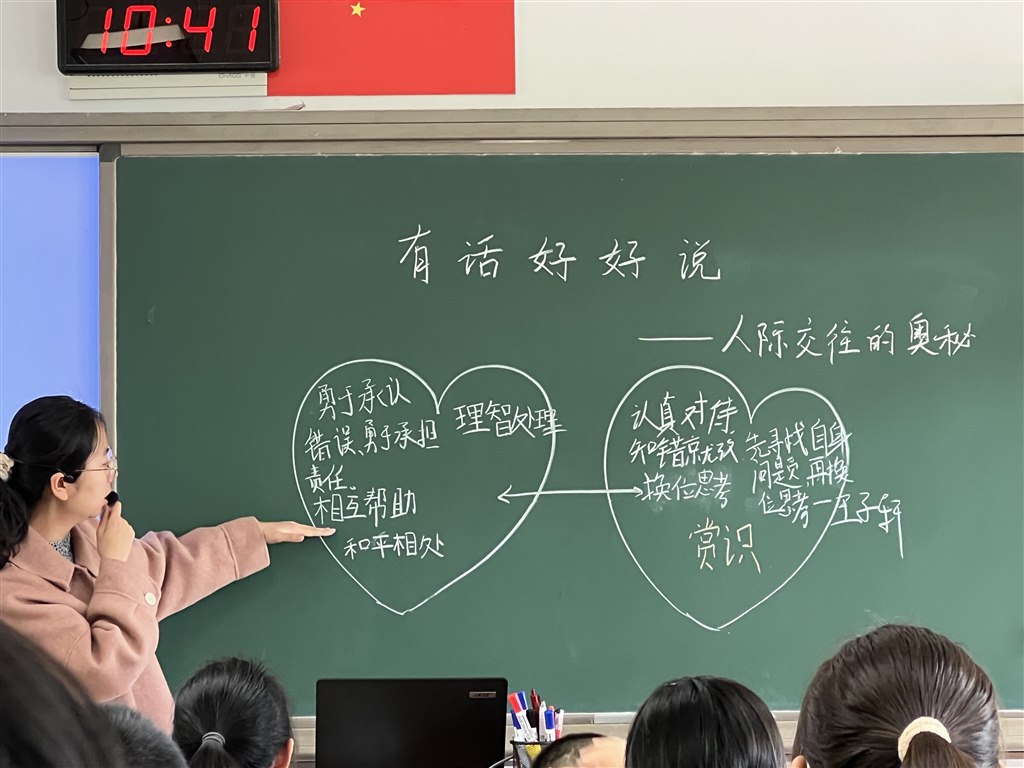 10:41
有话好好说
——人际交往的奥秘
勇于承认
错误、勇于承担
责任。
相互帮助
和平相处
理智处理
认真对待
知错就改
换位思考
赏识
先寻找自身
问题,再换
位思考—王子轩
acer